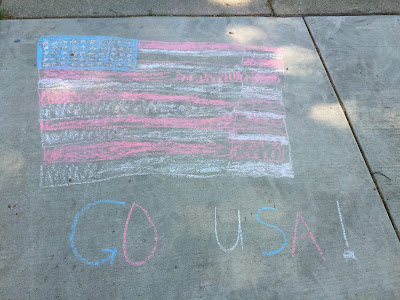 GO USA!